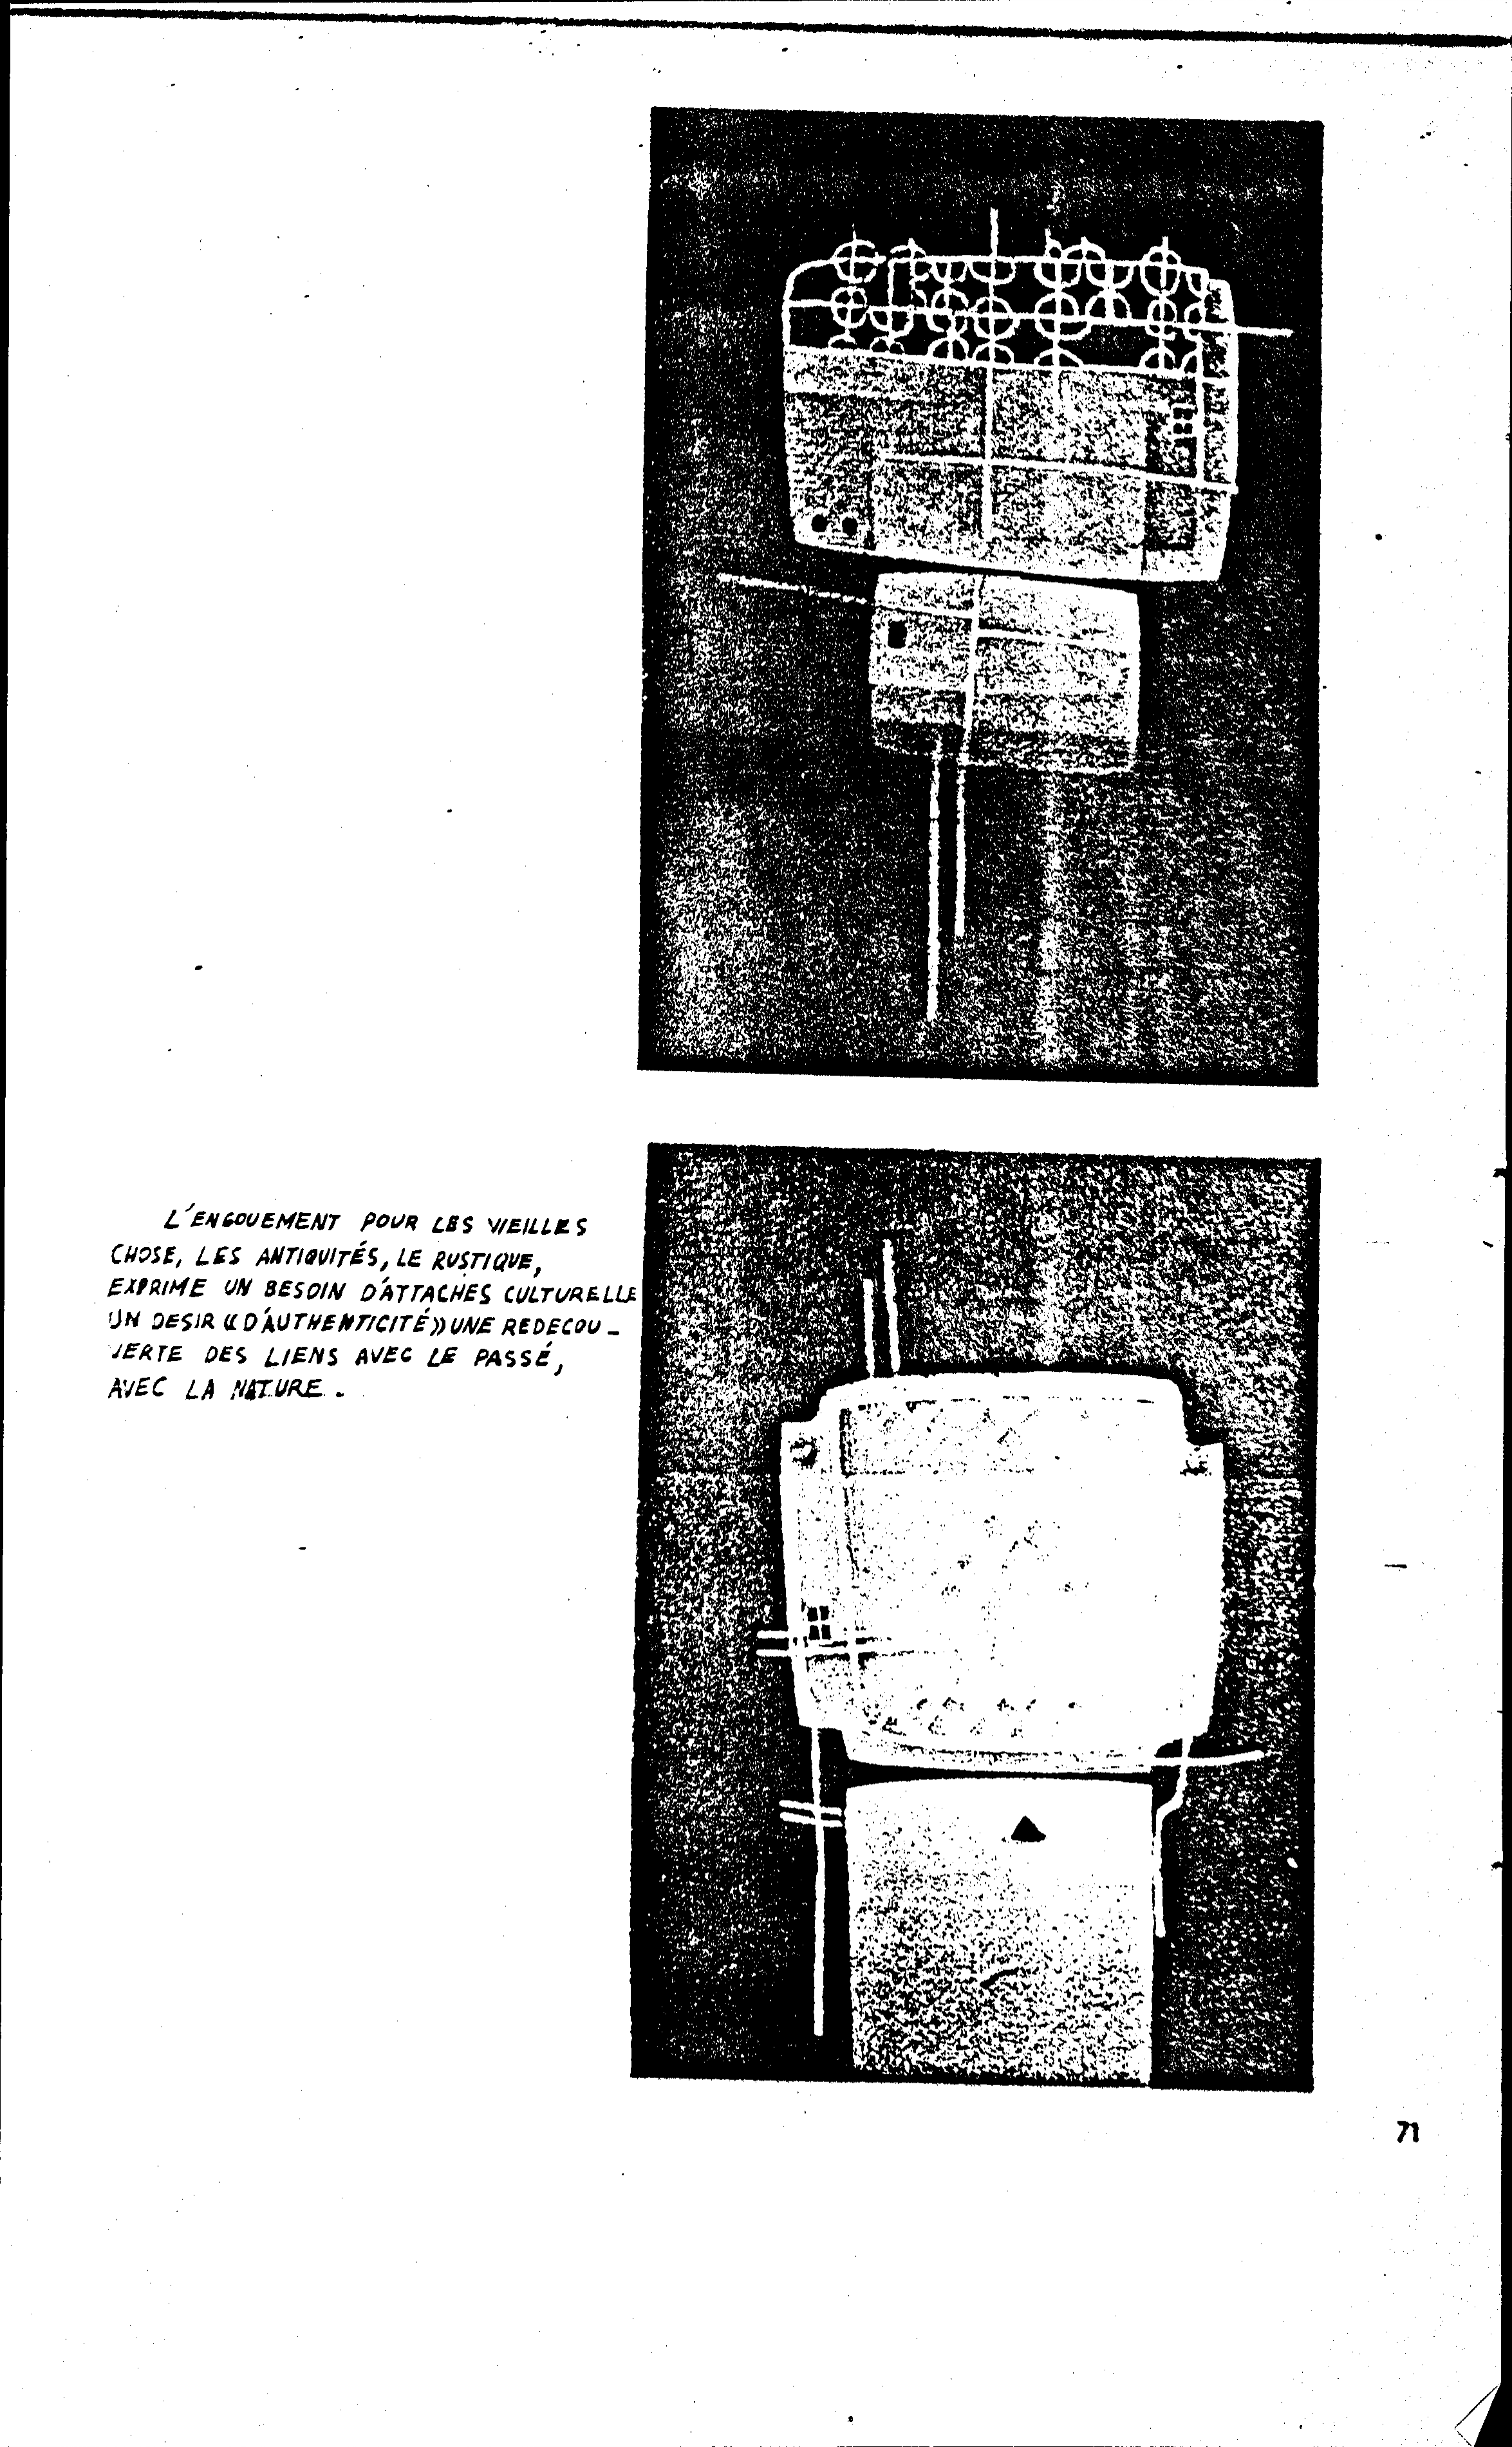 L'ENGOUEMENT POUR LES VIEILLES
CHOSE, LES ANTIQUITÉS, LE RUSTIQUE,
EXPRIME UN BESOIN D'ATTACHES CULTURELLE
UN DESIR «D'AUTHENTICITÉ» UNE REDECOU-
VERTE DES LIENS AVEC LE PASSÉ,
AVEC LA NATURE.
71